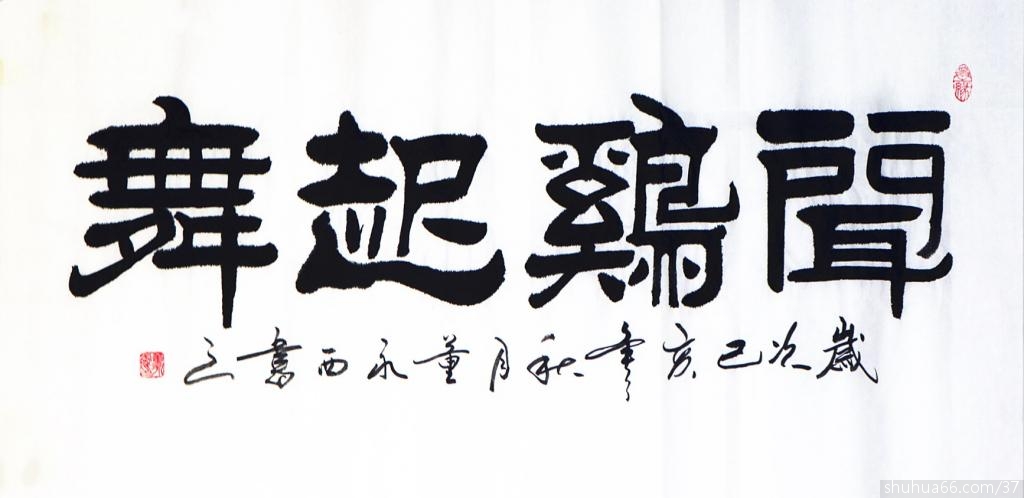 聞鷄起舞
歲次己亥年秋月董永西書之
shuhua66.com/37